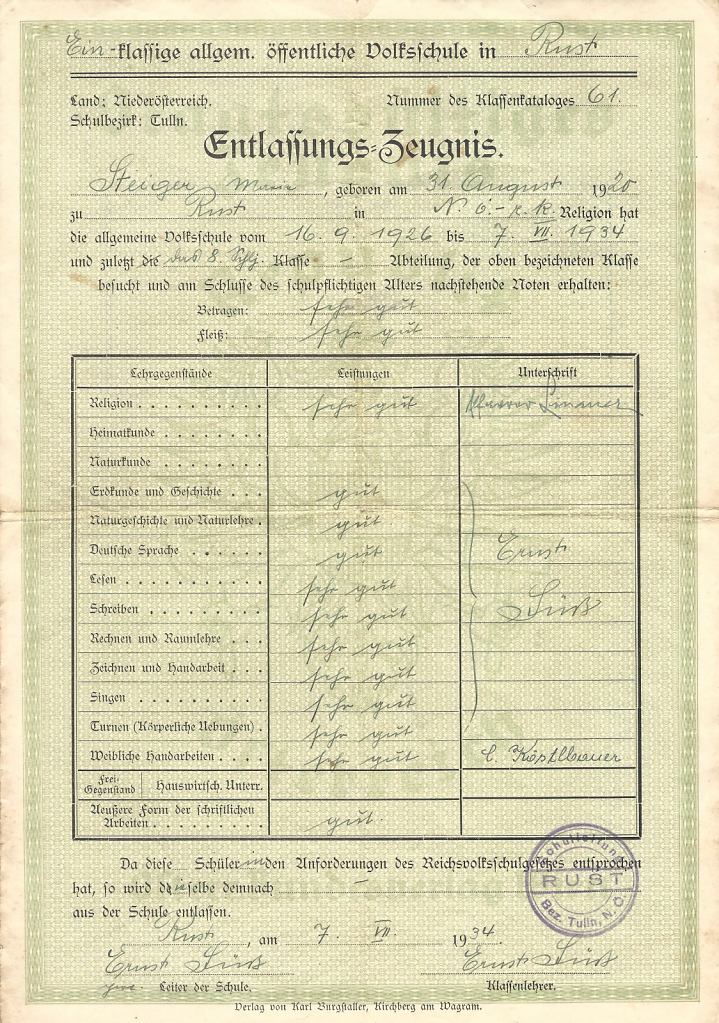 Ein-klassige allgem. öffentliche Volksschule in Rust
Land: Niederösterreich.
Nummer des Klassenkataloges 61.
Schulbezirk: Tulln.
Entlassungs-Zeugnis.
Steiger Marie, geboren am 31. August 1920
zu Rust in N. Ö. - r. k. Religion hat
die allgemeine Volksschule vom 16. 9. 1926 bis 7. VII. 1934
und zuletzt die das 8. Schj. Klasse - Abteilung, der oben bezeichneten Klasse
besucht und am Schlusse des schulpflichtigen Alters nachstehende Noten erhalten:
Betragen: sehr gut
Fleiß: sehr gut
Lehrgegenstände Leistungen Unterschrift
Religion . . . . . . . . . . sehr gut Pfarrer
Heimatkunde . . . . . . . .
Naturkunde . . . . . . . .
Erdkunde und Geschichte . . . gut
Naturgeschichte und Naturlehre . gut
Deutsche Sprache . . . . . . gut Ernst
Lesen . . . . . . . . . . . sehr gut
Schreiben . . . . . . . . . sehr gut Süß
Rechnen und Raumlehre . . . sehr gut
Zeichnen und Handarbeit . . . sehr gut
Singen . . . . . . . . . . sehr gut
Turnen (Körperliche Uebungen) . sehr gut
Weibliche Handarbeiten . . . . . sehr gut C. Köstlbauer
Frei-Gegenstand Hauswirtsch. Unterr.
Aeußere Form der schriftlichen
Arbeiten . . . . . . . . . gut.
Da diese Schülerin den Anforderungen des Reichsvolksschulgesetzes entsprochen
hat, so wird dieselbe demnach -
aus der Schule entlassen.
Schulleitung
RUST
Bez. Tulln, N. Ö.
Rust, am 7. VII. 1934.
Ernst Süß Ernst Süß
prov. Leiter der Schule. Klassenlehrer.
Verlag von Karl Burgstaller, Kirchberg am Wagram.